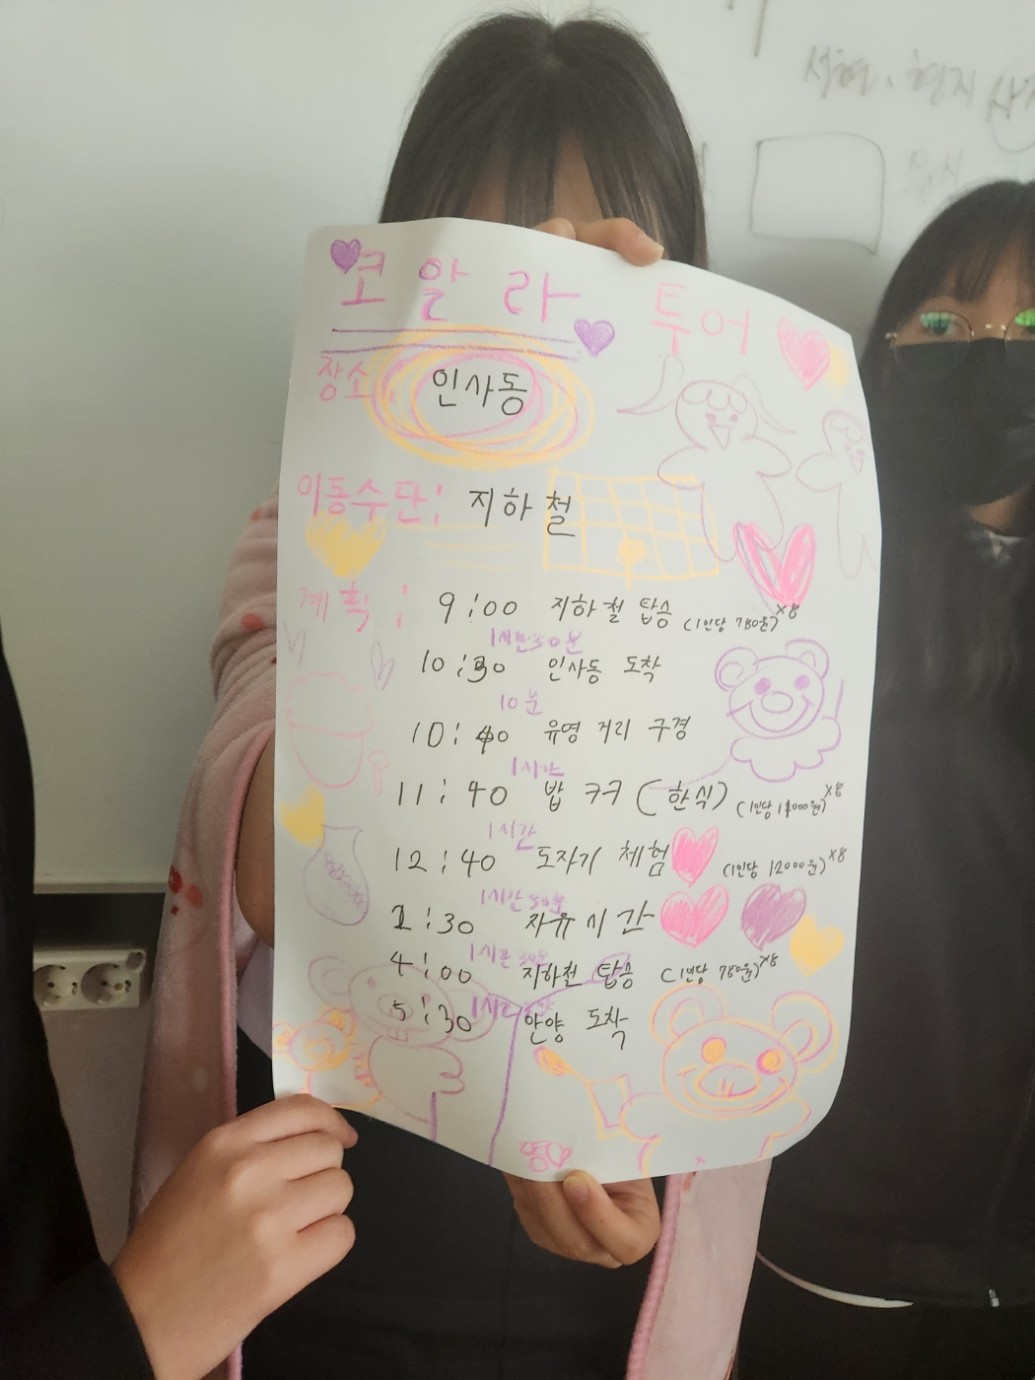 서현, 현지
코알라 투어
장소 인사동
이동수단: 지하철
계획: 9:00 지하철 탑승 (1인당 780원)×8
1시간30분
10:30 인사동 도착
10분
10:40 유영 거리 구경
1시간
11:40 밥 쿠쿠 (한식) (1인당 원)×8
1시간
12:40 도자기 체험 (1인당 12000원)×8
1시간 50분
:30 자유시간
1시간 30분
4:00 지하철 탑승 (1인당 780원)×8
5:30 안양 도착